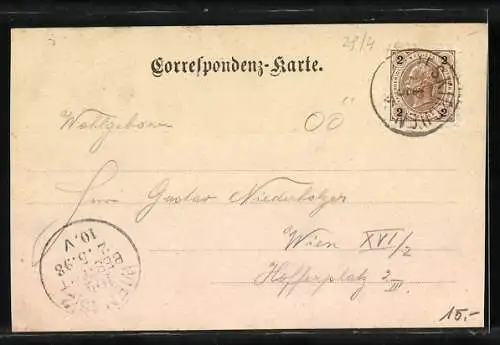 29/4
2 2
Correspondenz-Karte.
2 2
Wohlgeboren
Herr Gustav Niederholzer
Wien XVI/2
Hofferplatz 2
III
WIEN
.5.98
10.V
15.-